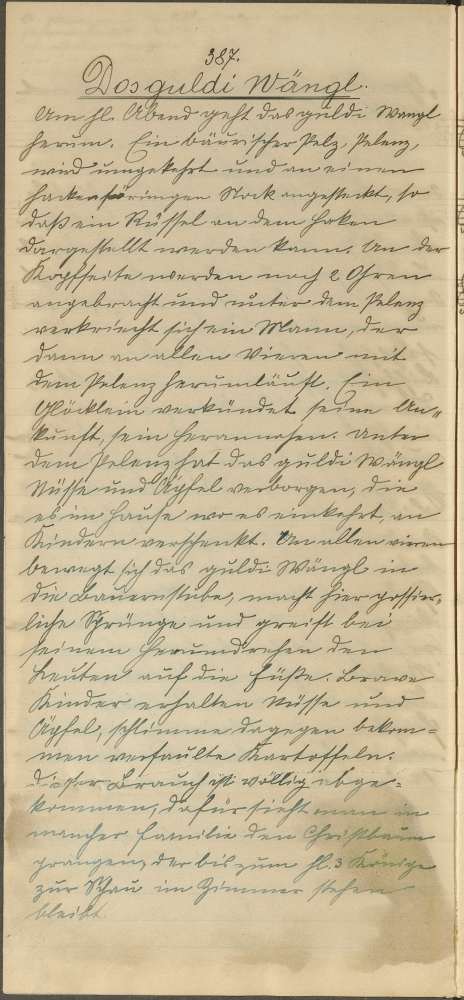 387.
Dos guldi Wängl.
Am hl. Abend geht das guldi Wangl
herum. Ein bäurischer Pelz, Pelenz,
wird umgekehrt und an einen
hackenförmigen Stock angesteckt, so
daß ein Rüssel an dem Haken
dargestellt werden kann. An der
Kopfseite werden noch 2 Ohren
angebracht und unter dem Pelenz
verkriecht sich ein Mann, der
dann an allen Vieren mit
dem Pelenz herumläuft. Ein
Glöcklein verkündet seine An„
kunft, sein Herannahen. Unter
dem Pelenz hat das guldi Wängl
Nüsse und Äpfel verborgen, die
es im Hause wo es einkehrt, an
Kindern verschenkt. An allen vieren
bewegt sich das guldi Wängl in
die Bauernstube, macht hier possier„
liche Sprünge und greift bei
seinem Herumdrehen den
Leuten auf die Füße. Brave
Kinder erhalten Nüsse und
Äpfel, schlimme dagegen bekom=
men verfaulte Kartoffeln.
Dieser Brauch ist völlig abge=
kommen, dafür sieht man in
mancher Familie den Christbaum
prangen, der bis zum hl. 3 Könige
zur Schau im Zimmer stehen
bleibt.